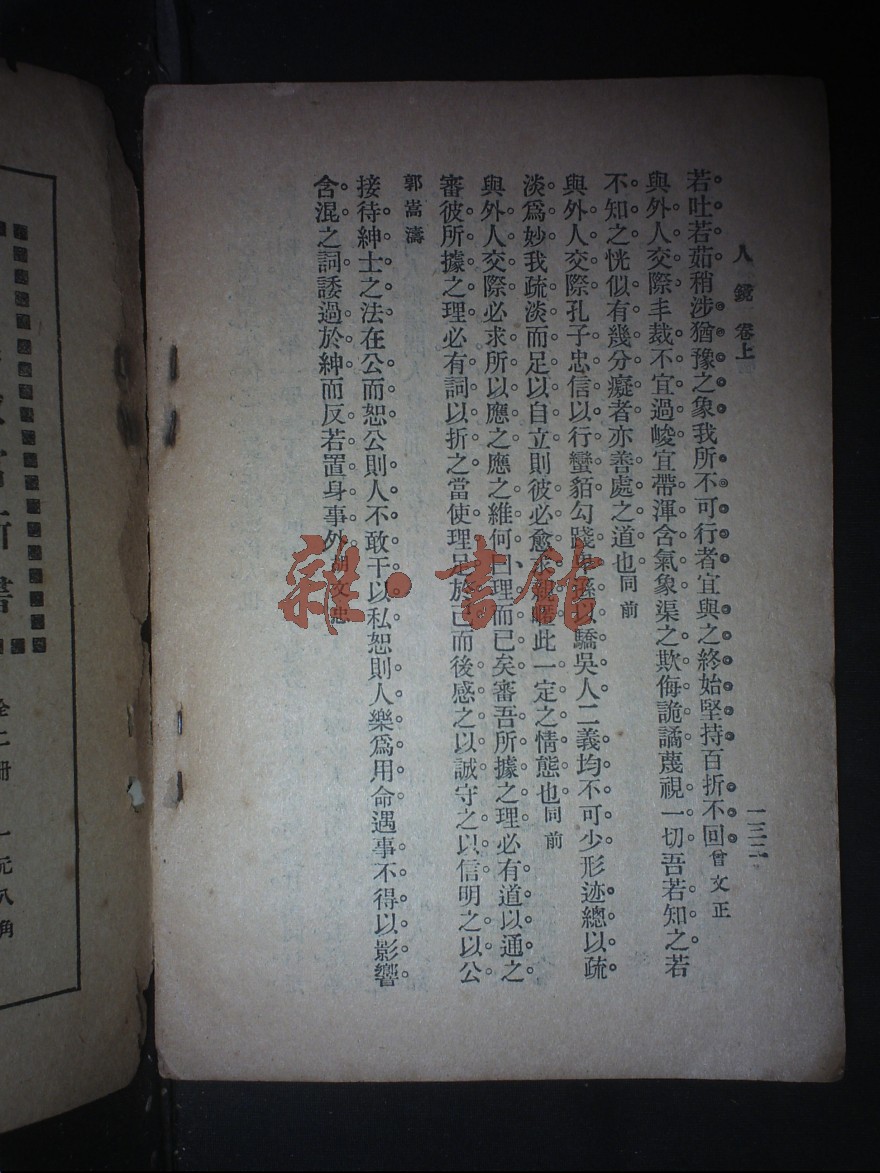 人鏡 卷上 一三三
若吐若茹稍涉猶豫之象我所不可行者宜與之終始堅持百折不回曾文正
與外人交際丰裁不宜過峻宜帶渾含氣象渠之欺侮詭譎蔑視一切吾若知之若
不知之恍似有幾分癡者亦善處之道也同前
與外人交際孔子忠信以行蠻貊勾踐卑遜以驕吳人二義均不可少形迹總以疏
淡爲妙我疏淡而足以自立則彼必愈求親暱此一定之情態也同前
與外人交際必求所以應之應之維何曰理而已矣審吾所據之理必有道以通之
審彼所據之理必有詞以折之當使理足於己而後感之以誠守之以信明之以公
郭嵩濤
接待紳士之法在公而恕公則人不敢干以私恕則人樂爲用命遇事不得以影響
含混之詞諉過於紳而反若置身事外胡文忠
雜·書館
新書
全二冊 一元八角